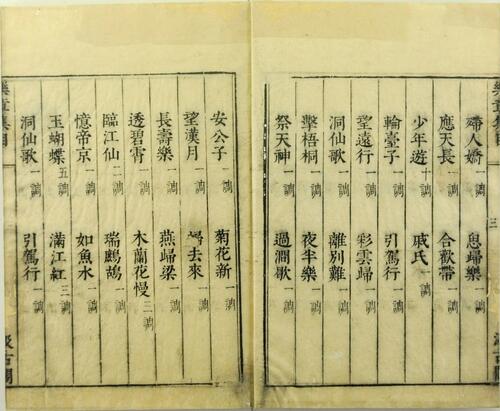 樂章集目
三
殢人嬌 一調 思歸樂 一調
應天長 一調 合歡帶 一調
少年遊 十調 戚氏 一調
輪臺子 一調 引駕行 一調
望遠行 一調 彩雲歸 一調
洞仙歌 一調 離別難 一調
擊梧桐 一調 夜半樂 一調
祭天神 一調 過澗歇 一調
安公子 一調 菊花新 一調
望漢月 一調 歸去來 一調
長壽樂 一調 燕歸梁 一調
透碧霄 一調 木蘭花慢 三調
臨江仙 二調 瑞鷓鴣 一調
憶帝京 一調 如魚水 一調
玉蝴蝶 五調 滿江紅 三調
洞仙歌 一調 引駕行 一調
樂章集目
汲古閣